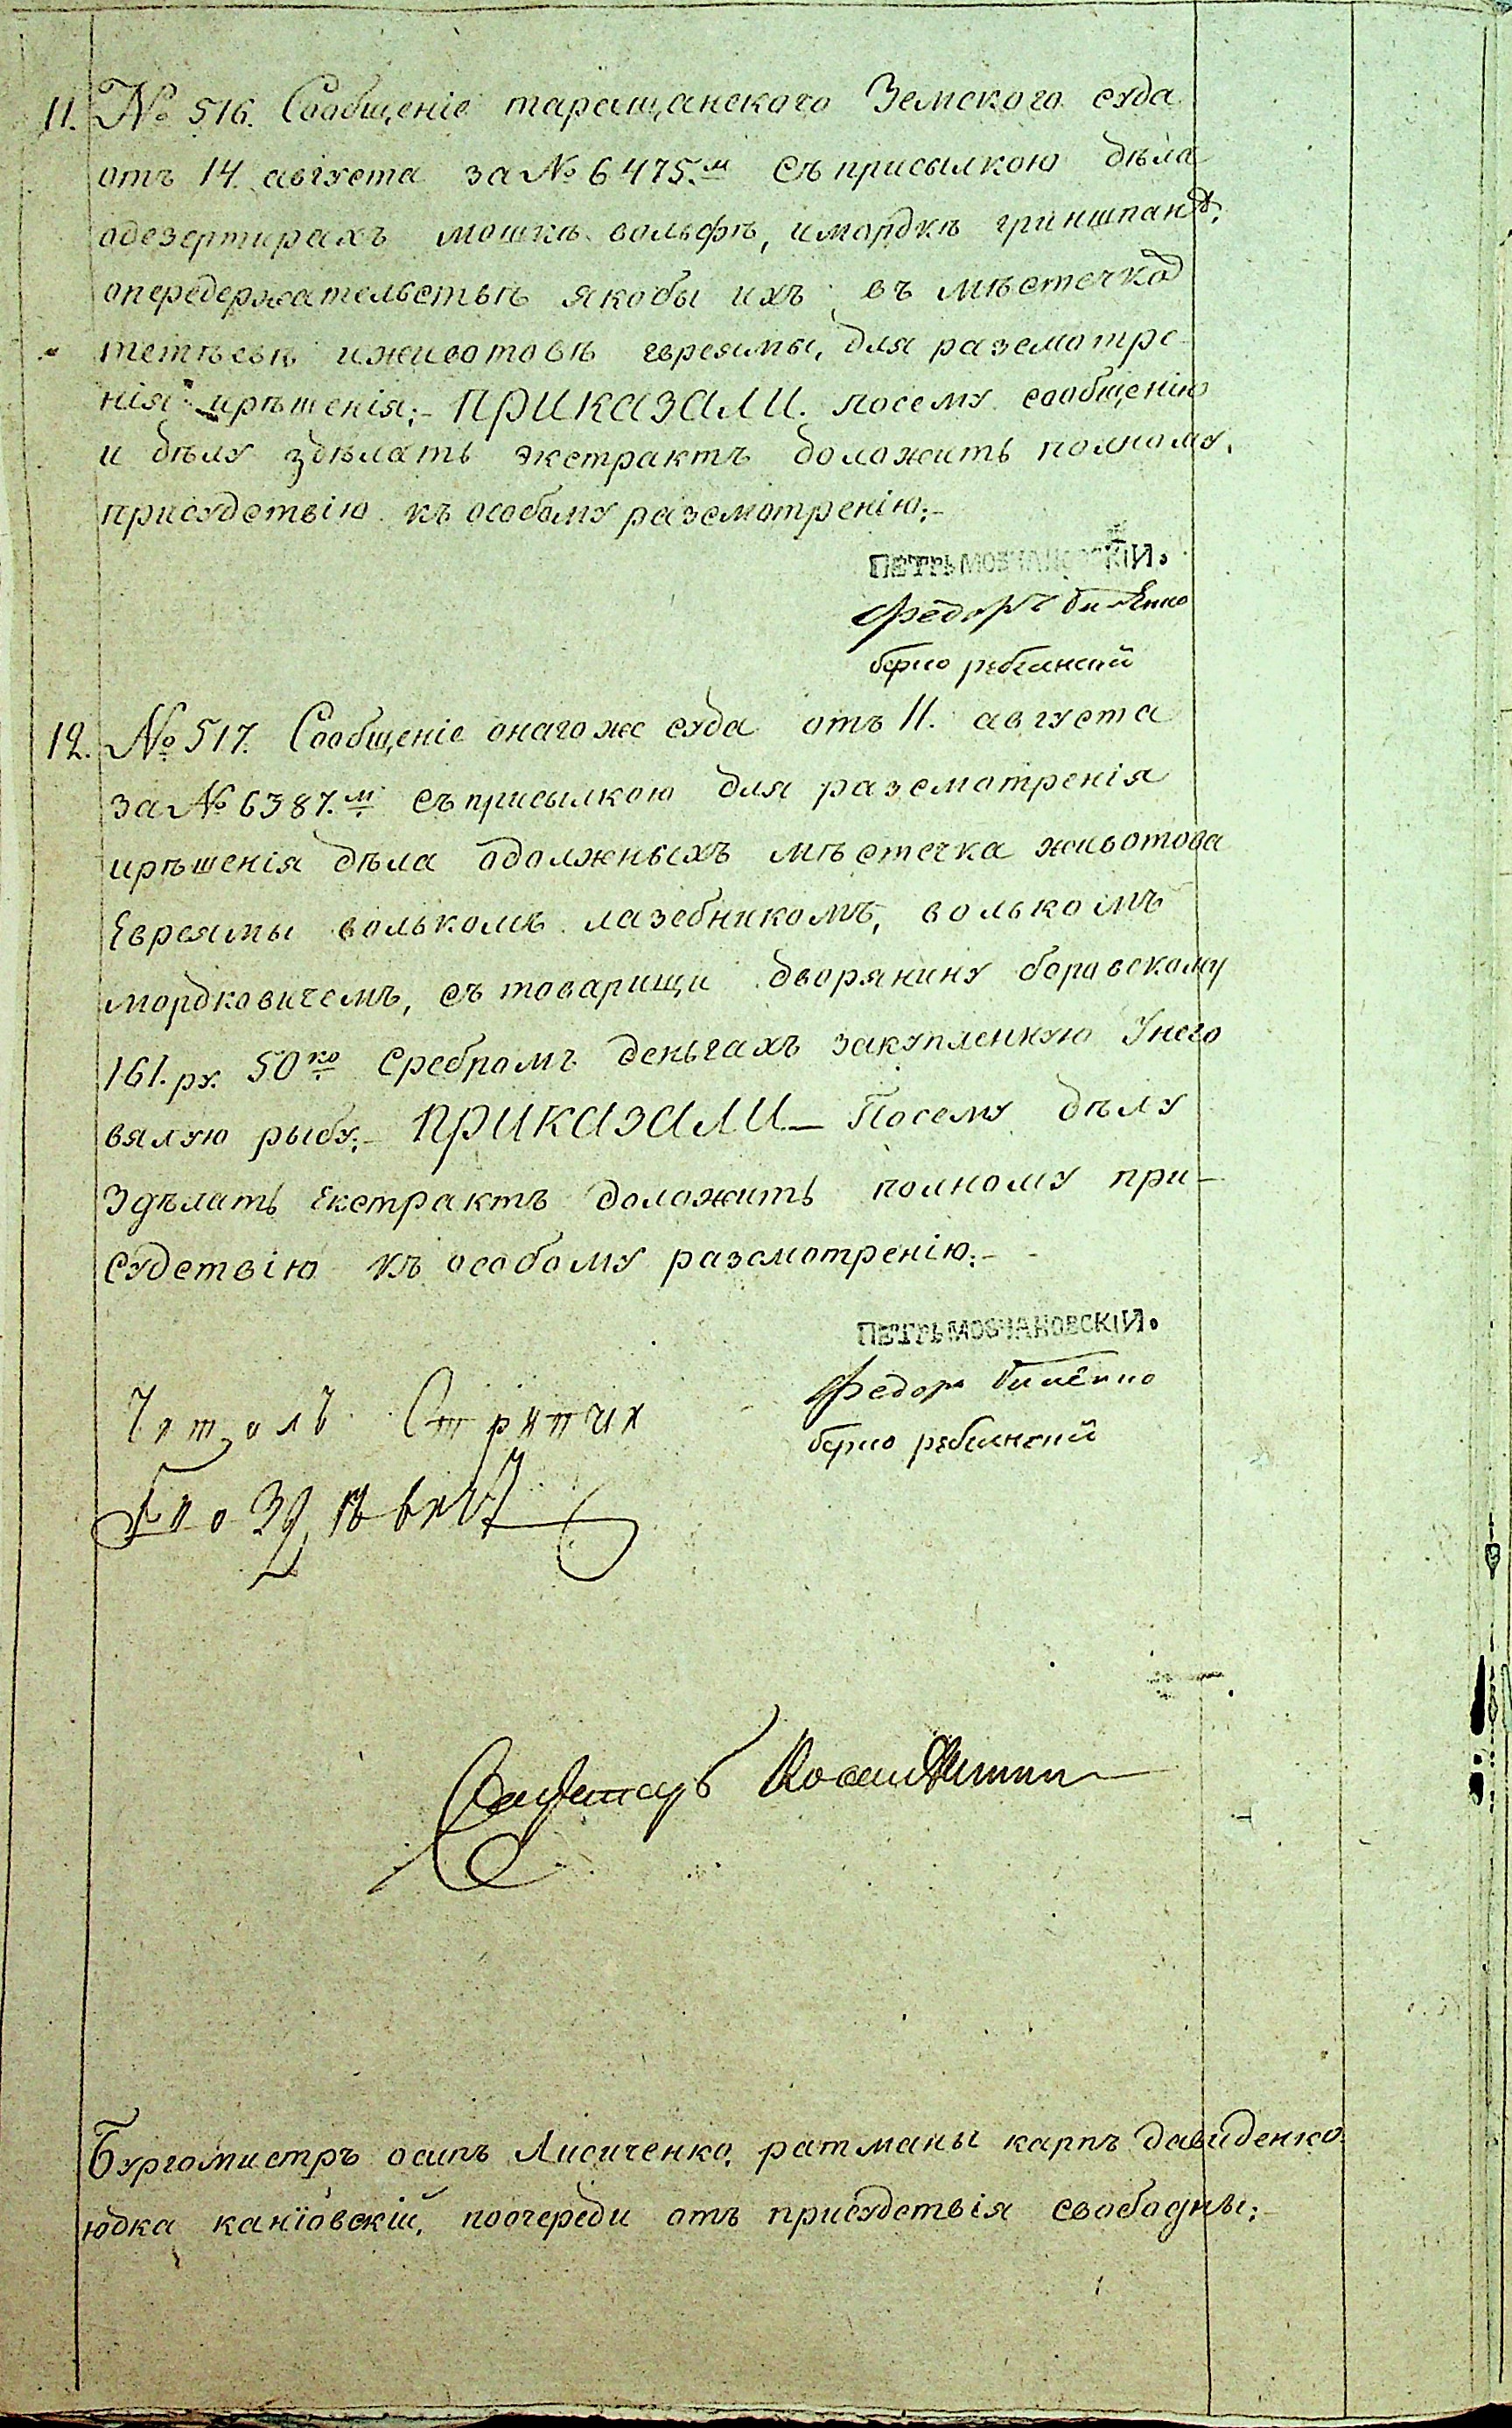 11. № 516. Сообщеніе таращанского Земского суда
отъ 14. августа за № 6475.м съ присылкою дѣла
одезертирахъ мошкѣ вольфѣ, имордкѣ гриншпанѣ,
опередержательствѣ якобы ихъ въ мѣстечкѣ
тетѣевѣ иживотовѣ евреямы, для разсмотре-
нія ирѣшенія;- ПРИКАЗАЛИ. посему сообщенію
и дѣлу здѣлать экстрактъ доложить полному
присудствію къ особому разсмотренію;-
ПЕТРЬ МОВЧАНОВСКІЙ.
Федоръ
берко
12. № 517. Сообщеніе онагоже суда отъ 11. августа
за № 6387.м съ присылкою для разсмотренія
ирѣшенія дѣла одолжныхъ мѣстечка животова
Евреямы волькомъ лазебникомъ, волькомъ
мордковичемъ, съ товарищи дворянину боровскому
161. ру. 50 ко сребромъ деньгахъ закупленную Унего
вялую рыбу;- ПРИКАЗАЛИ - Посему дѣлу
здѣлать Екстрактъ доложить полному при-
судствію къ особому разсмотренію;-
ПЕТРЬ МОВЧАНОВСКІЙ.
Федоръ
берко
Читалъ Стряпчи
Секретарь
Бургомистръ осипъ Лисиченко, ратманы карпъ давиденко
юдка каніовскій, поочереди отъ присудствія свободны;-